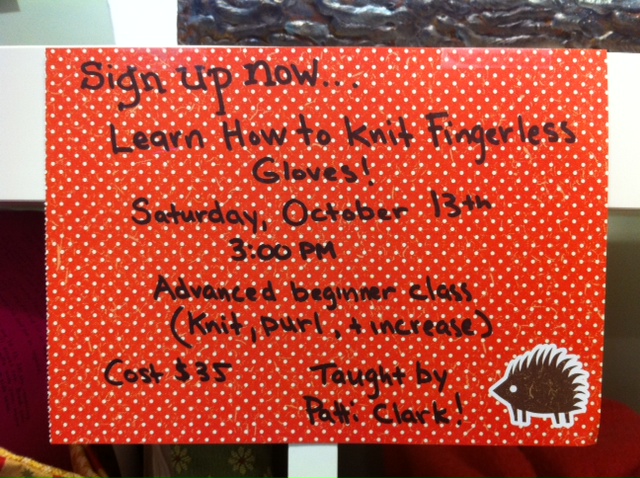 Sign up now...
Learn How to Knit Fingerless
Gloves!
Saturday, October 13th
3:00 PM
Advanced beginner class
(Knit, purl, + increase)
Cost $35
Taught by
Patti Clark!